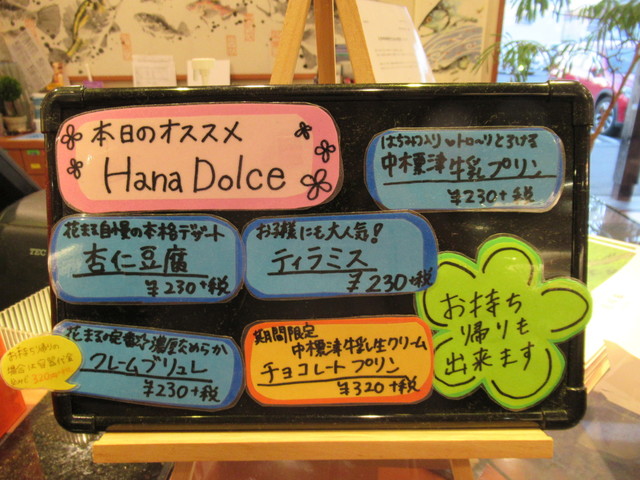 本日のオススメ
Hana Dolce
はちみつ入り♥トロ〜りとろける
中標津牛乳プリン
¥230+税
花まる自慢の本格デザート
杏仁豆腐
¥230+税
お子様にも大人気!
ティラミス
¥230+税
花まるの定番 濃厚なめらか
クレームブリュレ
¥230+税
期間限定
中標津牛乳生クリーム
チョコレートプリン
¥320+税
お持ち
帰りも
出来ます
お持ち帰りの
場合は容器代含
TEC